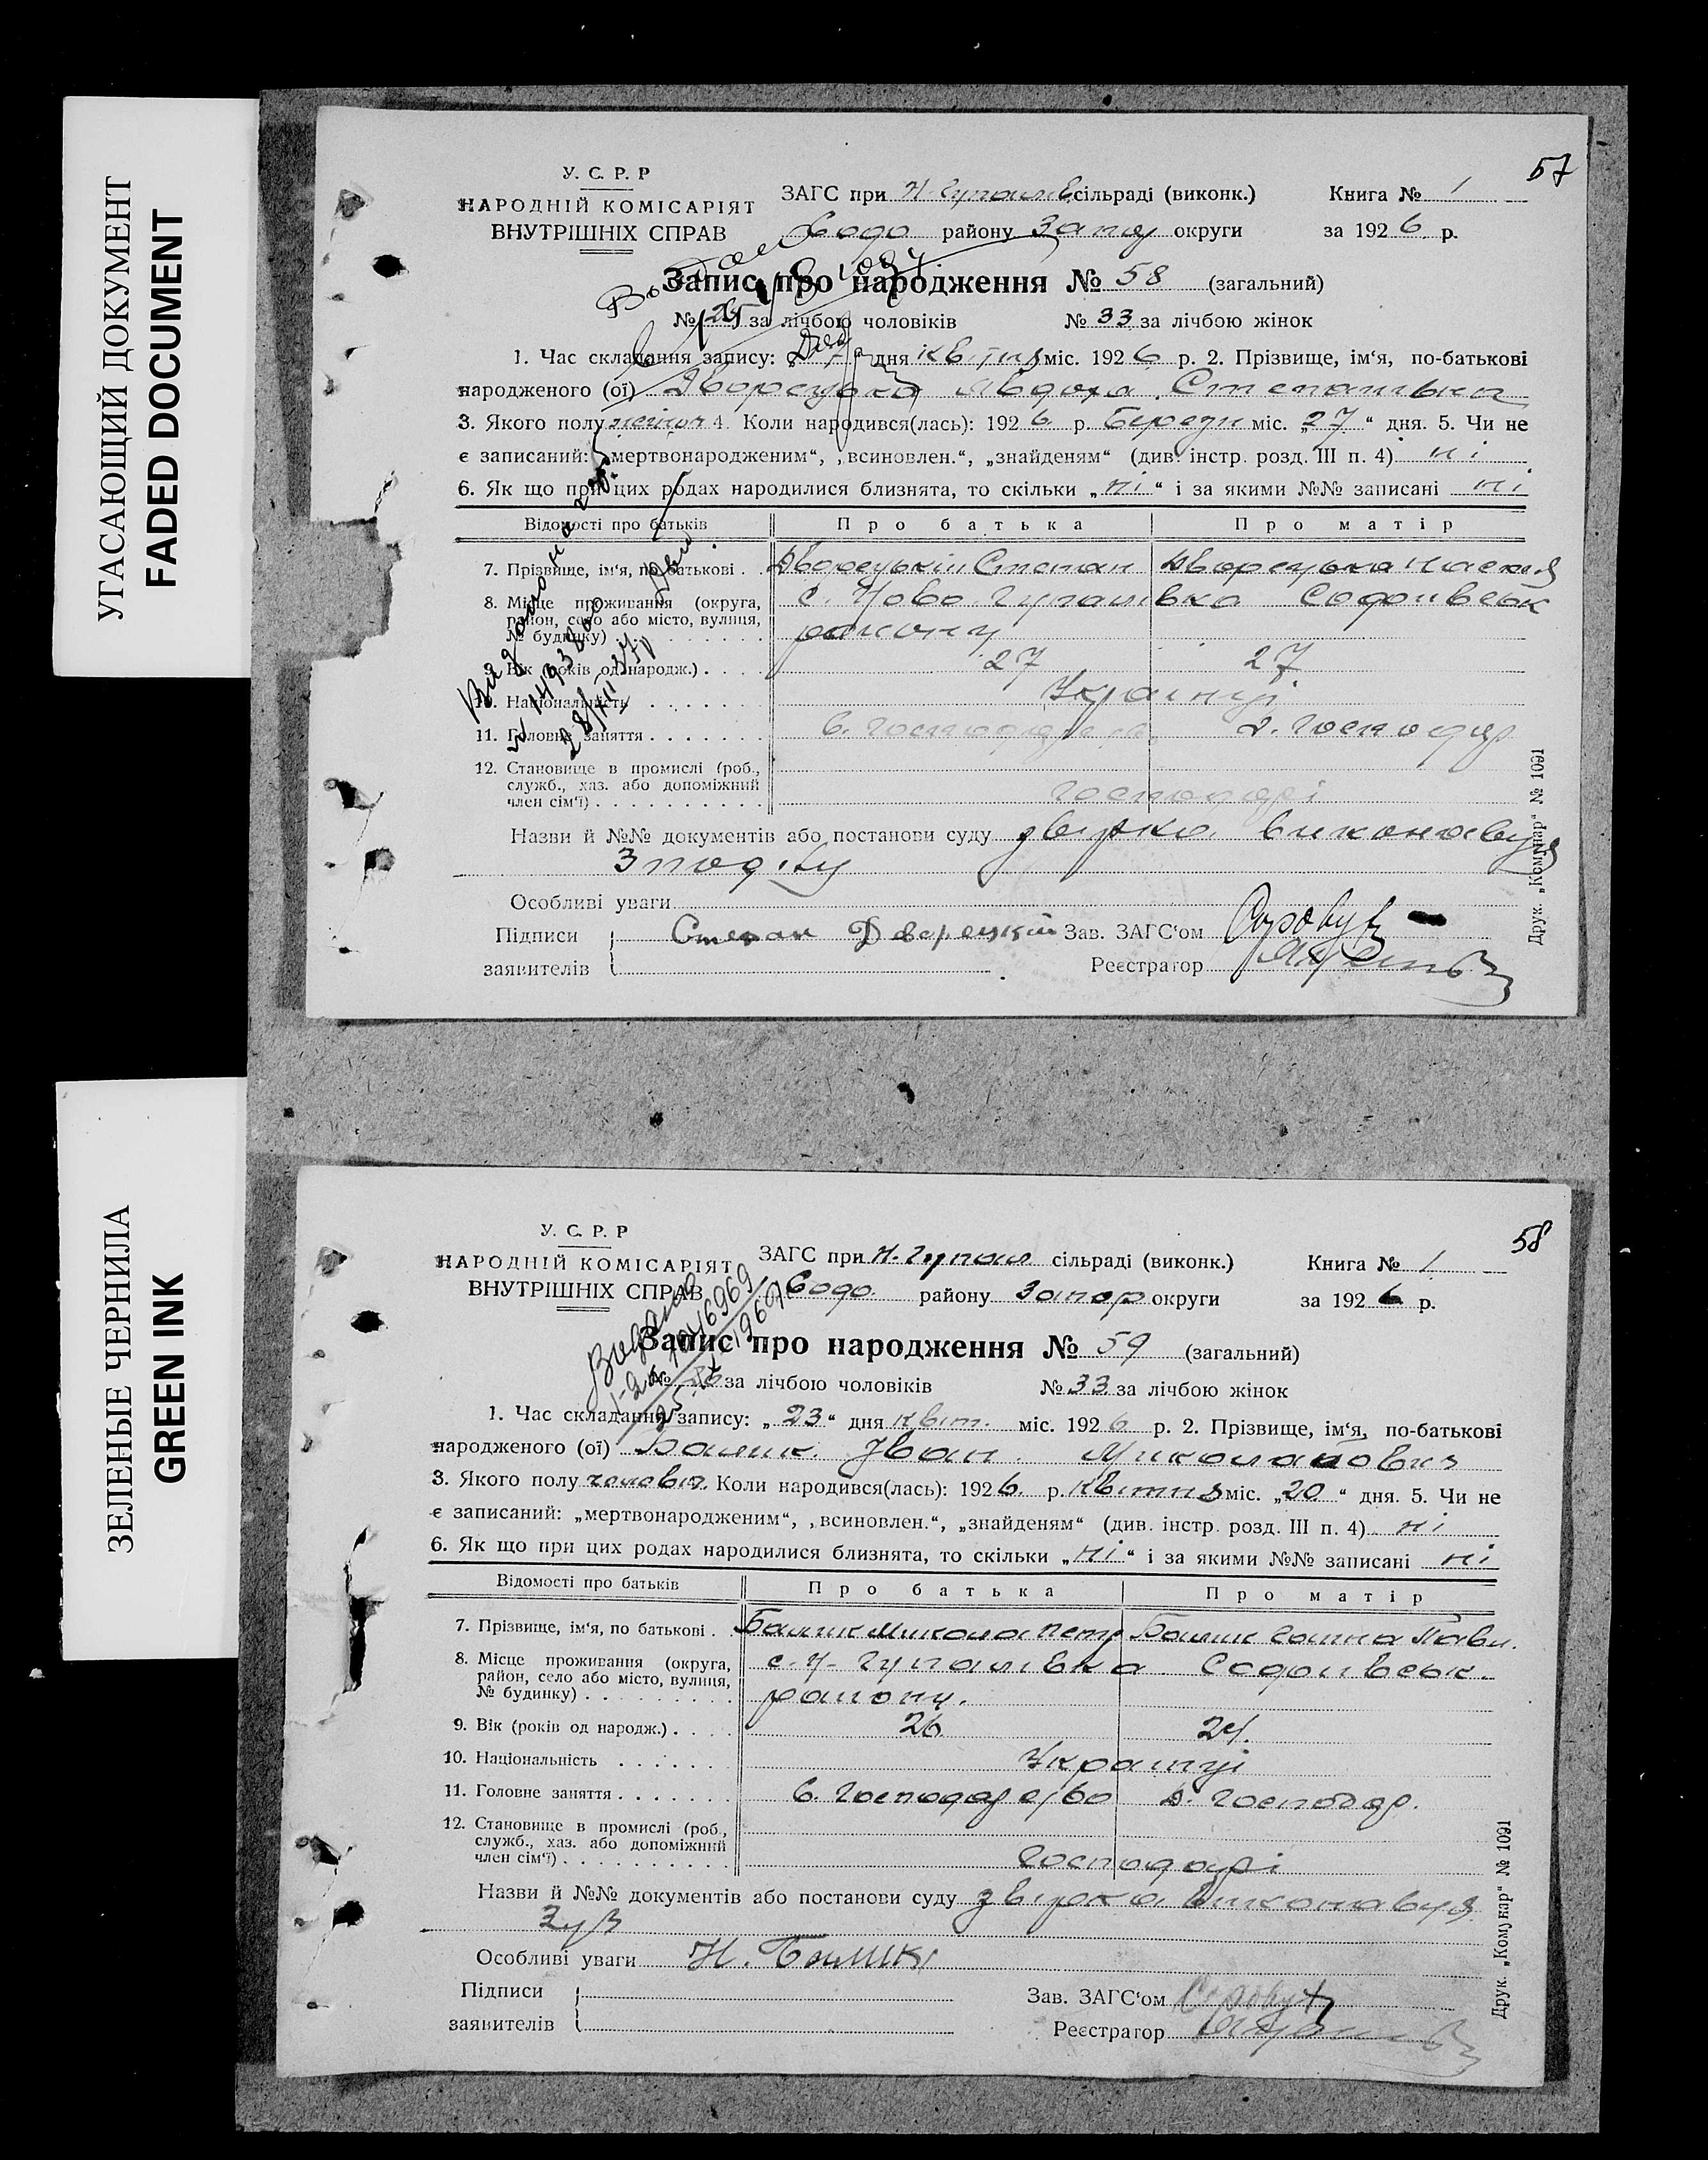 УГАСАЮЩИЙ ДОКУМЕНТ
FADED DOCUMENT
57
У. С. Р. Р
НАРОДНІЙ КОМІСАРІЯТ
ВНУТРІШНІХ СПРАВ
ЗАГС при Н-Гупалів сільраді (виконк.)
Содо району Запор округи
Книга № 1
за 1926 р.
Запис про народження № 58 (загальний)
№ 25 за лічбою чоловіків № 33 за лічбою жінок
1. Час складання запису: дня квітня міс. 1926 р. 2. Прізвище, ім‘я, по-батькові
народженого (ої) Дворецька Явдоха Степанівна
3. Якого полу жіноч 4. Коли народився(лась): 1926 р. Березн міс. „27“ дня. 5. Чи не
є записаний: „мертвонародженим“, „всиновлен.“, „знайденям“ (див. інстр. розд. III п. 4) ні
6. Як що при цих родах народилися близнята, то скільки „ні“ і за якими №№ записані ні
Відомості про батьків Про батька Про матір
7. Прізвище, ім‘я, по батькові . . Дворецький Степан Дворецька Насття
8. Місце проживання (округа, район, село або місто, вулиця, № будинку) с. Ново Гупалівка Содоівськ
району
9. Вік (років од народж.) . . . . 27 27
10. Національність . . . . . . Українці
11. Головне заняття . . . . . . . с. господарств д. господар
12. Становище в промислі (роб., служб., хаз. або допоміжний член сім‘ї) . . . . . . . . . . господарі
Назви й №№ документів або постанови суду звірка виконавця
Особливі уваги
Підписи Степан Дворецкій Зав. ЗАГС‘ом
заявителів Реєстратор
Друк. „Комунар“ № 1091
ЗЕЛЕНЫЕ ЧЕРНИЛА
GREEN INK
58
У. С. Р. Р
НАРОДНІЙ КОМІСАРІЯТ
ВНУТРІШНІХ СПРАВ
ЗАГС при Н-Гупал сільраді (виконк.)
Содо. району Запор округи
Книга № 1
за 1926 р.
Запис про народження № 59 (загальний)
№ 26 за лічбою чоловіків № 33 за лічбою жінок
1. Час складання запису: „23“ дня квіт. міс. 1926 р. 2. Прізвище, ім‘я, по-батькові
народженого (ої) Балик Іван Миколайович
3. Якого полу чоловіч. Коли народився(лась): 1926. р. Квітня міс. „20“ дня. 5. Чи не
є записаний: „мертвонародженим“, „всиновлен.“, „знайденям“ (див. інстр. розд. III п. 4) ні
6. Як що при цих родах народилися близнята, то скільки „ні“ і за якими №№ записані ні
Відомості про батьків Про батька Про матір
7. Прізвище, ім‘я, по батькові . . Балик Микола Петр Балик Ганна Павл.
8. Місце проживання (округа, район, село або місто, вулиця, № будинку) . . . . . . . . . с. Н-Гупалівка Содоівськ.
району.
9. Вік (років од народж.) . . . . 26. 24.
10. Національність . . . . . . Українці
11. Головне заняття . . . . . . . с. господарство д. господар.
12. Становище в промислі (роб., служб., хаз. або допоміжний член сім‘ї) . . . . . . . . . . господарі
Назви й №№ документів або постанови суду звірка виконавця
Зуз
Особливі уваги Н. Балик
Підписи Зав. ЗАГС‘ом
заявителів Реєстратор
Друк. „Комунар“ № 1091